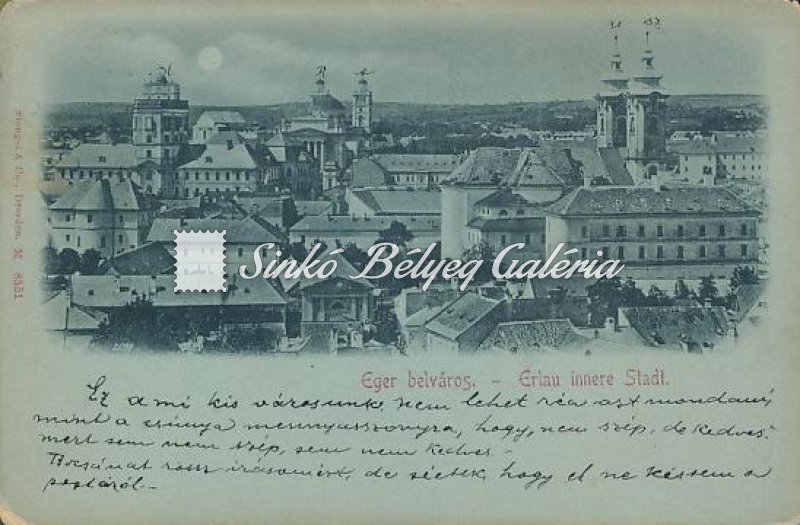 Stengel & Co., Dresden. M 8351
Sinkó Bélyeg Galéria
Eger belváros. - Erlau innere Stadt.
Ez a mi kis városunk, nem lehet reá azt mondani,
mint a csúnya mennyasszonyra, hogy, nem szép, de kedves:
mert sem nem szép, sem nem kedves. -
Bocsánat rossz írásomért, de sietek, hogy el ne késsem a
postáról. -